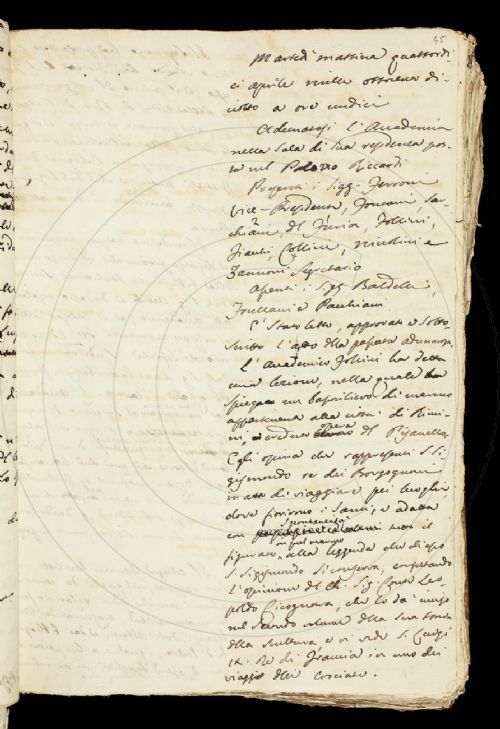 45
Martedì mattina quattordi-
ci aprile mille ottocento di-
ciotto a ore undici
Adunatasi l'Accademia
nella Sala di sua residenza pos-
ta nel Palazzo Riccardi
Presenti i Sigg. Ferroni
Vice-Presidente, Fontani Sar-
chiani, Del Furia, Follini,
Fiacchi, Collini, Niccolini e
Zannoni Segretario
Assenti i Sigg. Baldelli,
Frullani e Pacchiani
È stato letto, approvato e sotto-
scritto l'atto della passata adunanza,
L'Accademico Follini ha detta
una lezione, nella quale
spiega un bassorilievo di marmo
appartenente alla città di Rimi-
ni, e creduto opera del Pisanello.
Egli opina che rappresenti S. Si-
gismondo re dei Borgognoni
in atto di viaggiare pei luoghi,
dove fiorirono i Santi, e adatta
con spontaneità il
figurato in quel marmo alla leggenda che di esso
S. Sigismondo si conserva, confutando
l'opinione del Ch. Sig. Conte Leo-
poldo Cicognara, che lo dà inciso
nel secondo volume della sua Storia
della Scultura e vi vede S. Luigi
IX. Re di Francia in uno dei
viaggi delle Crociate.